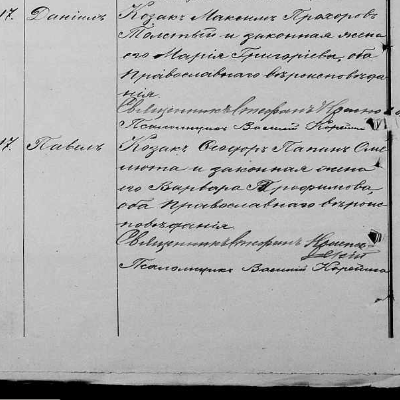 17. Даніилъ Козакъ Максимъ Прохоровъ
Толстый и законная жена
его Марія Григоріева, оба
Православнаго вѣроисповѣда
нія.
Священникъ Стефанъ
Псаломщикъ Василій Корейша
17. Павелъ Козакъ Ѳеодоръ
и законная жена
его Варвара Трофимова,
оба Православнаго вѣроис
повѣданія.
Священникъ Стефанъ
Псаломщикъ Василій Корейша